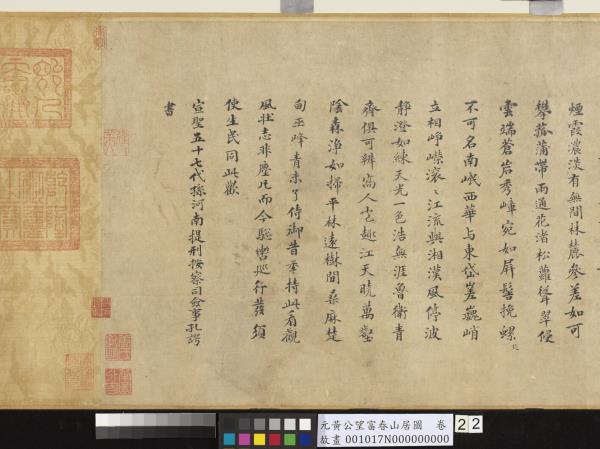 煙霞濃淡有無間林麓參差如可
攀菰蒲帶雨通花渚松蘿聳翠侵
雲端蒼岩秀嶂宛如屏髻挽螺
不可名南岷西華与東岱差巍峭
立相崢嶸滚〻江流與湘漢風停波
靜澄如練天光一色浩無涯魯衛青
齊俱可辨寓人之趣江天曉萬壑
陰森淨如掃平林遠樹間桑麻楚
甸巫峰青未了侍御昔奉持此看觀
風壮志非塵凡而今驄轡巡行發須
使生民同此歡
宣聖五十七代孫河南提刑按察司僉事孔諤
書
元黃公望富春山居圖 卷
故畫 001017N000000000
22